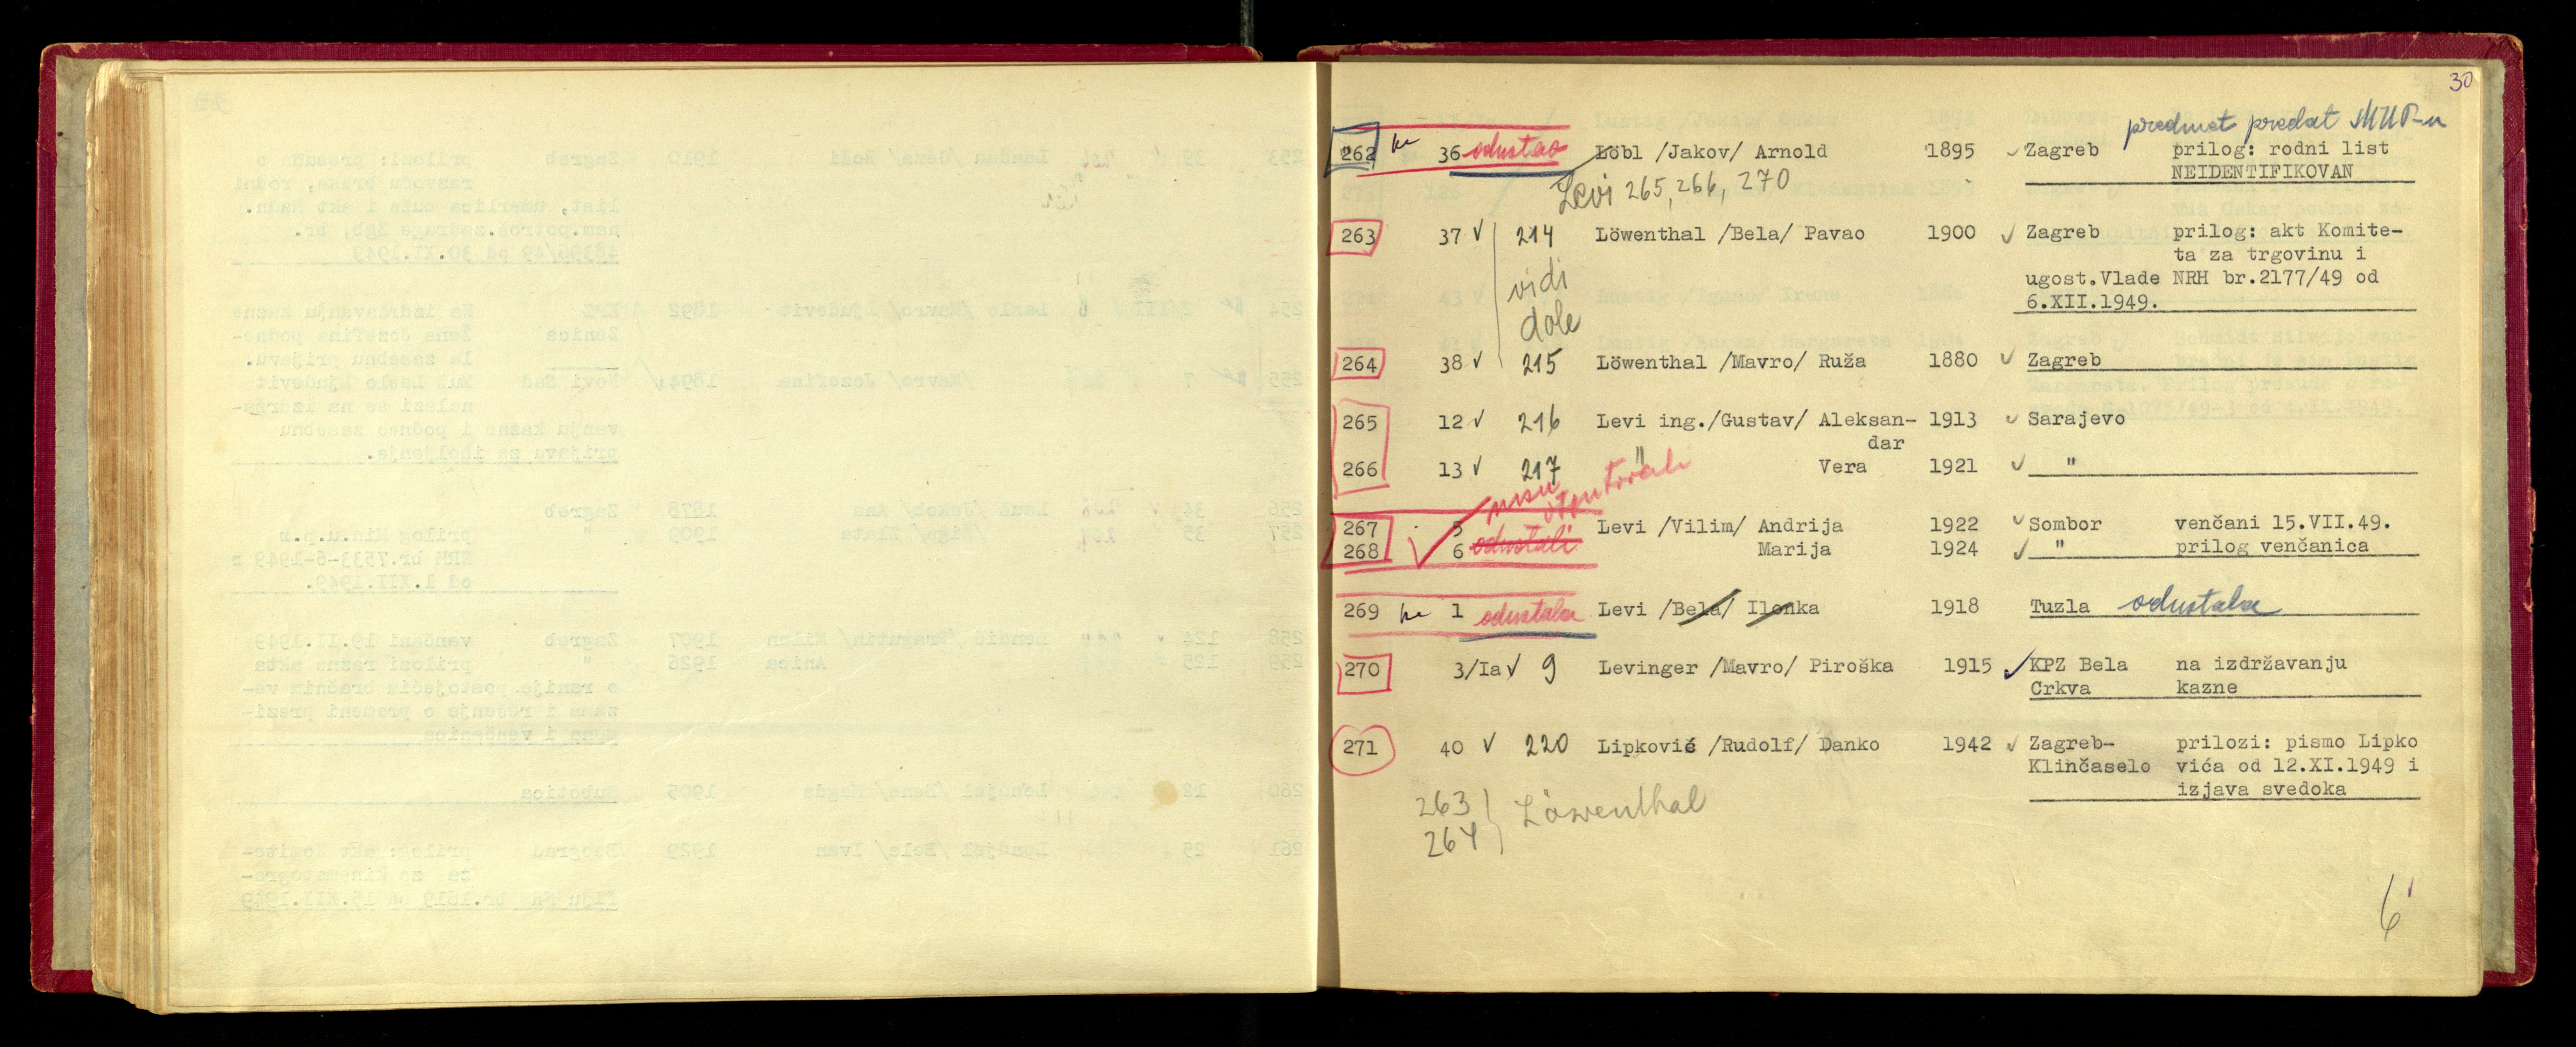 30
predmet predat MUP-u
262 36 odustao Löbl /Jakov/ Arnold 1895 Zagreb prilog: rodni list
NEIDENTIFIKOVAN
Levi 265, 266, 270
263 37 214 Löwenthal /Bela/ Pavao 1900 Zagreb prilog: akt Komite-
ta za trgovinu i
ugost.Vlade NRH br.2177/49 od
6.XII.1949.
vidi
dole
264 38 215 Löwenthal /Mavro/ Ruža 1880 Zagreb
265 12 216 Levi ing./Gustav/ Aleksan- 1913 Sarajevo
dar
266 13 217 " Vera 1921 "
nisu
267 5 Levi /Vilim/ Andrija 1922 Sombor venčani 15.VII.49.
268 6 odustali Marija 1924 " prilog venčanica
269 1 odustala Levi /Bela/ Ilonka 1918 Tuzla odustala
270 3/Ia 9 Levinger /Mavro/ Piroška 1915 KPZ Bela na izdržavanju
Crkva kazne
271 40 220 Lipković /Rudolf/ Danko 1942 Zagreb- prilozi: pismo Lipko
Klinčaselo vića od 12.XI.1949 i
izjava svedoka
263
264 Löwenthal
6